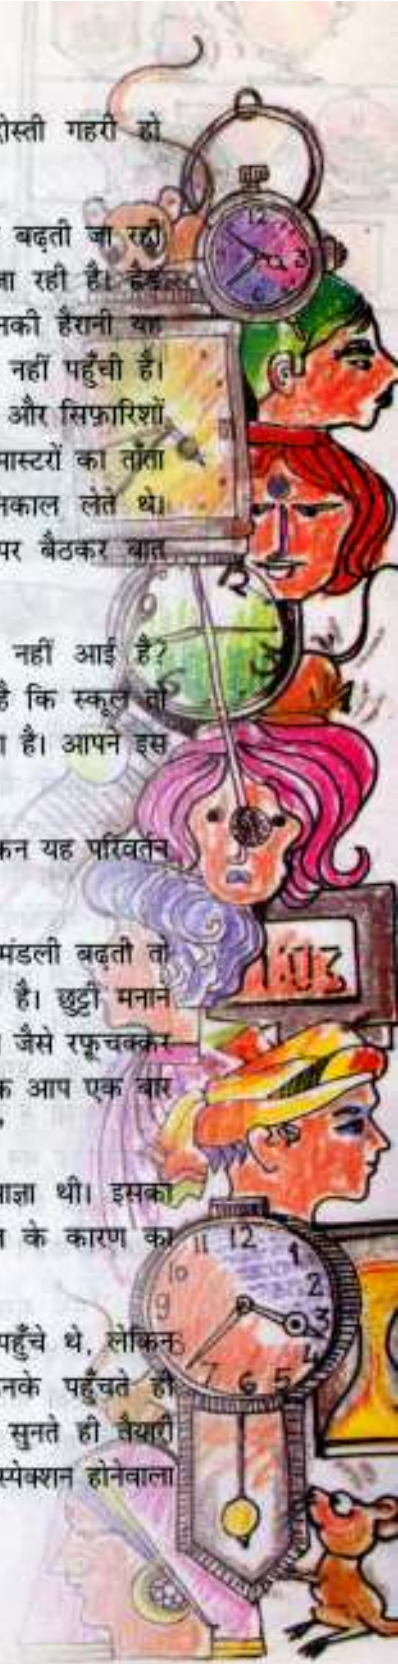 दोस्ती गहरी हो
बढ़ती जा रही
जा रही है। हेड
नकी हैरानी यह
नहीं पहुँची है।
और सिफ़ारिशों
मास्टरों का ताँता
नकाल लेते थे।
पर बैठकर बात
नहीं आई है?
है कि स्कूल तो
ा है। आपने इस
कन यह परिवर्तन
मंडली बढ़ती तो
है। छुट्टी मनाने
जैसे रफूचक्कर
क आप एक बार
ाज्ञा थी। इसका
के कारण का
पहुँचे थे, लेकिन
नके पहुँचते ही
सुनते ही तैयारी
स्पेक्शन होनेवाला
12
3
6
12
9
6
3
1:03
11 12 1
10 2
9 3
4
7 6 5